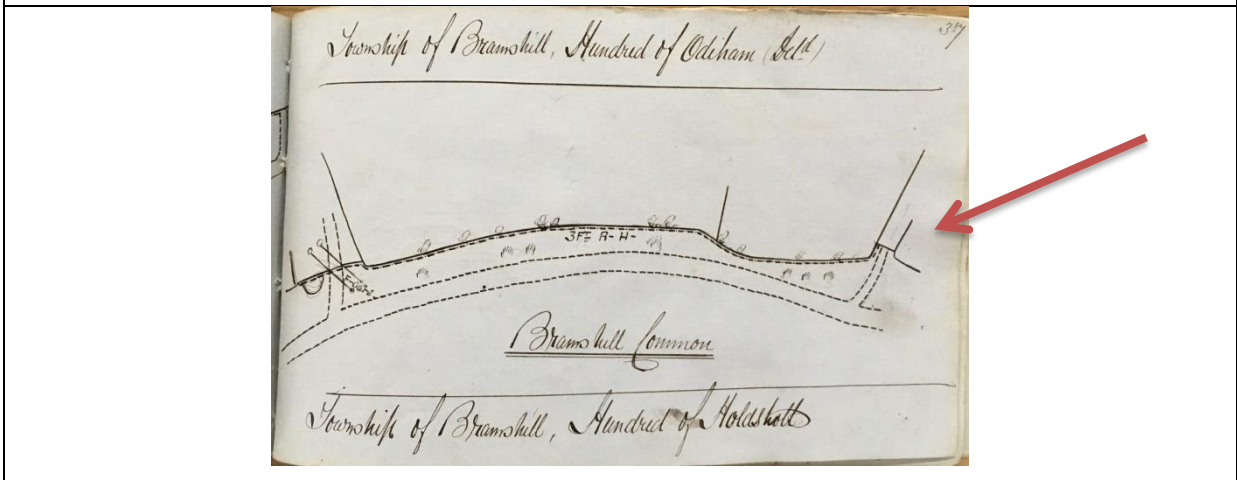 37
Township of Bramshill, Hundred of Odiham (Detd)
3 Ft R-H-
Bramshill Common
Township of Bramshill, Hundred of Holdshott